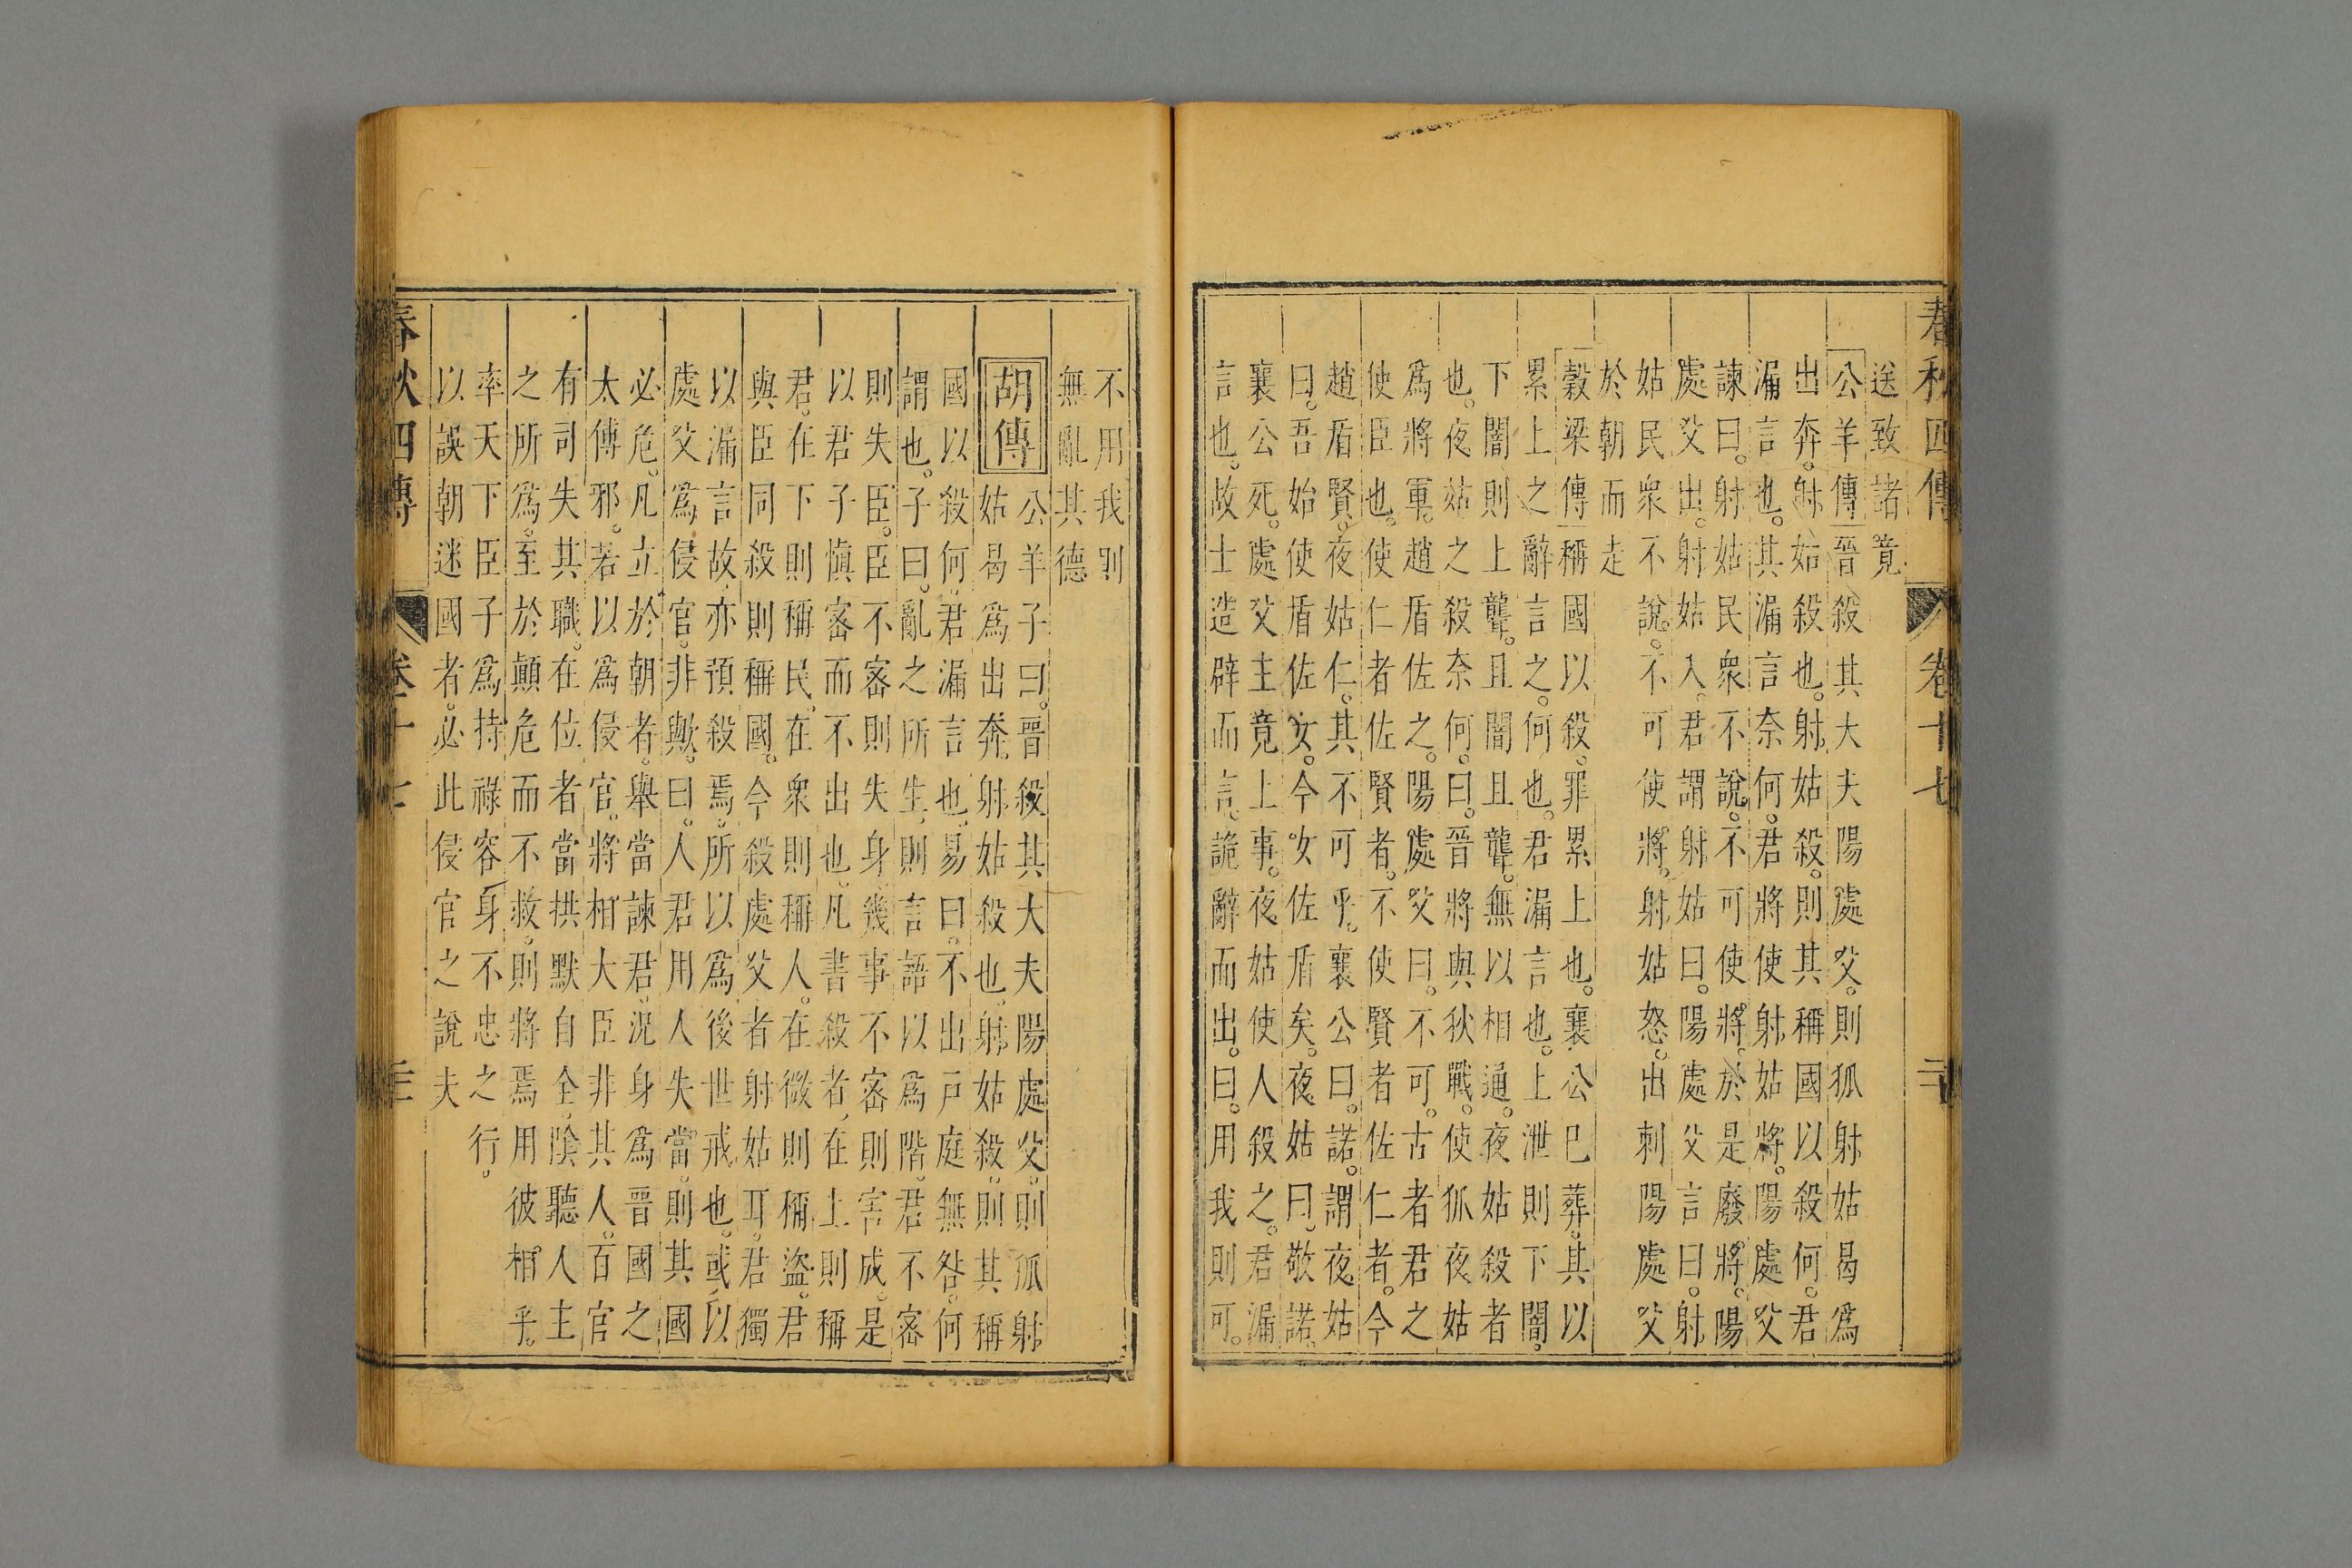 春秋四傳 卷十七
送致諸竟
公羊傳晉殺其大夫陽處父。則狐射姑曷爲
出奔。射姑殺也。射姑殺。則其稱國以殺何。君
漏言也。其漏言奈何。君將使射姑將。陽處父
諫曰。射姑民衆不說。不可使將。於是廢將。陽
處父出。射姑入。君謂射姑曰。陽處父言曰。射
姑民衆不說。不可使將。射姑怒。出刺陽處父
於朝而走
穀梁傳稱國以殺。罪累上也。襄公已葬。其以
累上之辭言之。何也。君漏言也。上泄則下闇。
下闇則上聾。且闇且聾。無以相通。夜姑殺者
也。夜姑之殺奈何。曰。晉將與狄戰。使狐夜姑
爲將軍。趙盾佐之。陽處父曰。不可。古者君之
使臣也。使仁者佐賢者。不使賢者佐仁者。今
趙盾賢。夜姑仁。其不可乎。襄公曰。諾。謂夜姑
曰。吾始使盾佐女。今女佐盾矣。夜姑曰。敬諾。
襄公死。處父主竟上事。夜姑使人殺之。君漏
言也。故士造辟而言。詭辭而出。曰。用我則可。
不用我則
無亂其德
胡傳
公羊子曰。晉殺其大夫陽處父。則狐射
姑曷爲出奔。射姑殺也。射姑殺。則其稱
國以殺何。君漏言也。易曰。不出戶庭無咎。何
謂也。子曰。亂之所生。則言語以爲階。君不密
則失臣。臣不密則失身。幾事不密則害成。是
以君子慎密而不出也。凡書殺者。在上則稱
君。在下則稱民。在衆則稱人。在微則稱盜。君
與臣同殺則稱國。今殺處父者射姑耳。君獨
以漏言故。亦預殺焉。所以爲後世戒也。或以
處父爲侵官。非歟。曰。人君用人失當。則其國
必危。凡立於朝者。舉當諫君。況身爲晉國之
太傅邪。若以爲侵官。將相大臣非其人。百官
有司失其職。在位者當拱默自全。陰聽人主
之所爲。至於顛危而不救。則將焉用彼相乎。
率天下臣子爲持祿容身不忠之行。
以誤朝迷國者。必此侵官之說夫
春秋四傳 卷十七